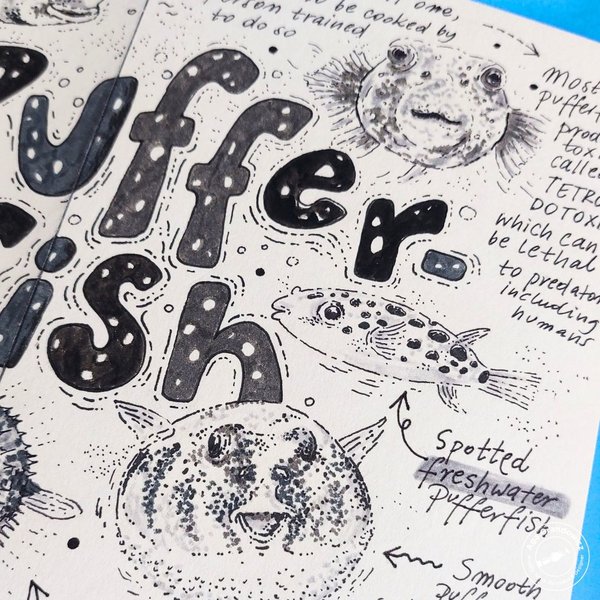 one,
to be cooked by
person trained
to do so
Puffer-
fish
Most
pufferf
prod
tox
calle
TETRO
DOTOXI
which can
be lethal
to predator
including
humans
Spotted
freshwater
pufferfish
Smooth